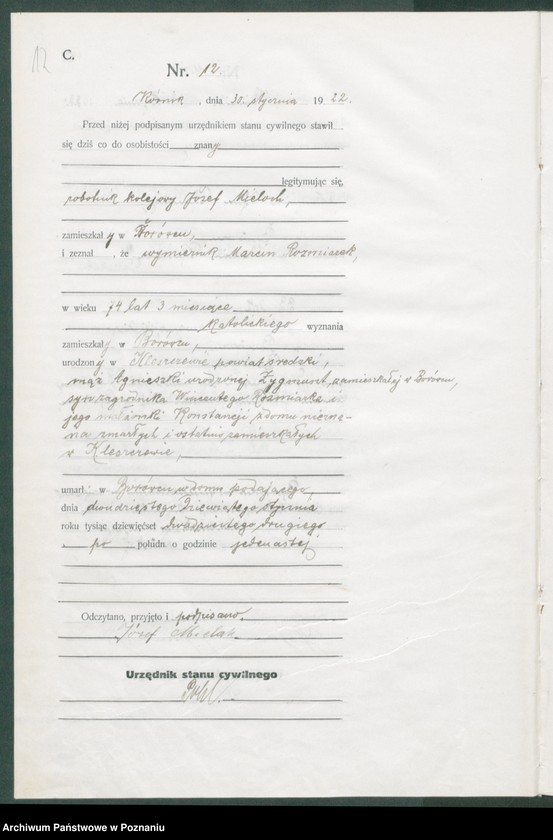 12
C.
Nr. 12
Kórnik, dnia 30 stycznia 1922.
Przed niżej podpisanym urzędnikiem stanu cywilnego stawił
się dziś co do osobistości znany
legitymując się,
robotnik kolejowy Józef Mieloch,
zamieszkały w Borówcu,
i zeznał, że wymiernik Marcin Rozmiarek,
w wieku 74 lat 3 miesiące
katolickiego wyznania
zamieszkały w Borówcu,
urodzony w Kleszczewie powiat średzki,
mąż Agnieszki urodzonej Zygmunt, zamieszkałej w Borówcu,
syn zagrodnika Wincentego Rozmiarka i
jego małżonki Konstancji z domu niezna-
na zmarłych i ostatnio zamieszkałych
w Kleszczewie,
umarł w Borówcu w domu podającego,
dnia dwudziestego dziewiątego stycznia
roku tysiąc dziewięćset dwudziestego drugiego
po połudn. o godzinie jedenastej
Odczytano, przyjęto i podpisano.
Józef Mieloch
Urzędnik stanu cywilnego
Archiwum Państwowe w Poznaniu